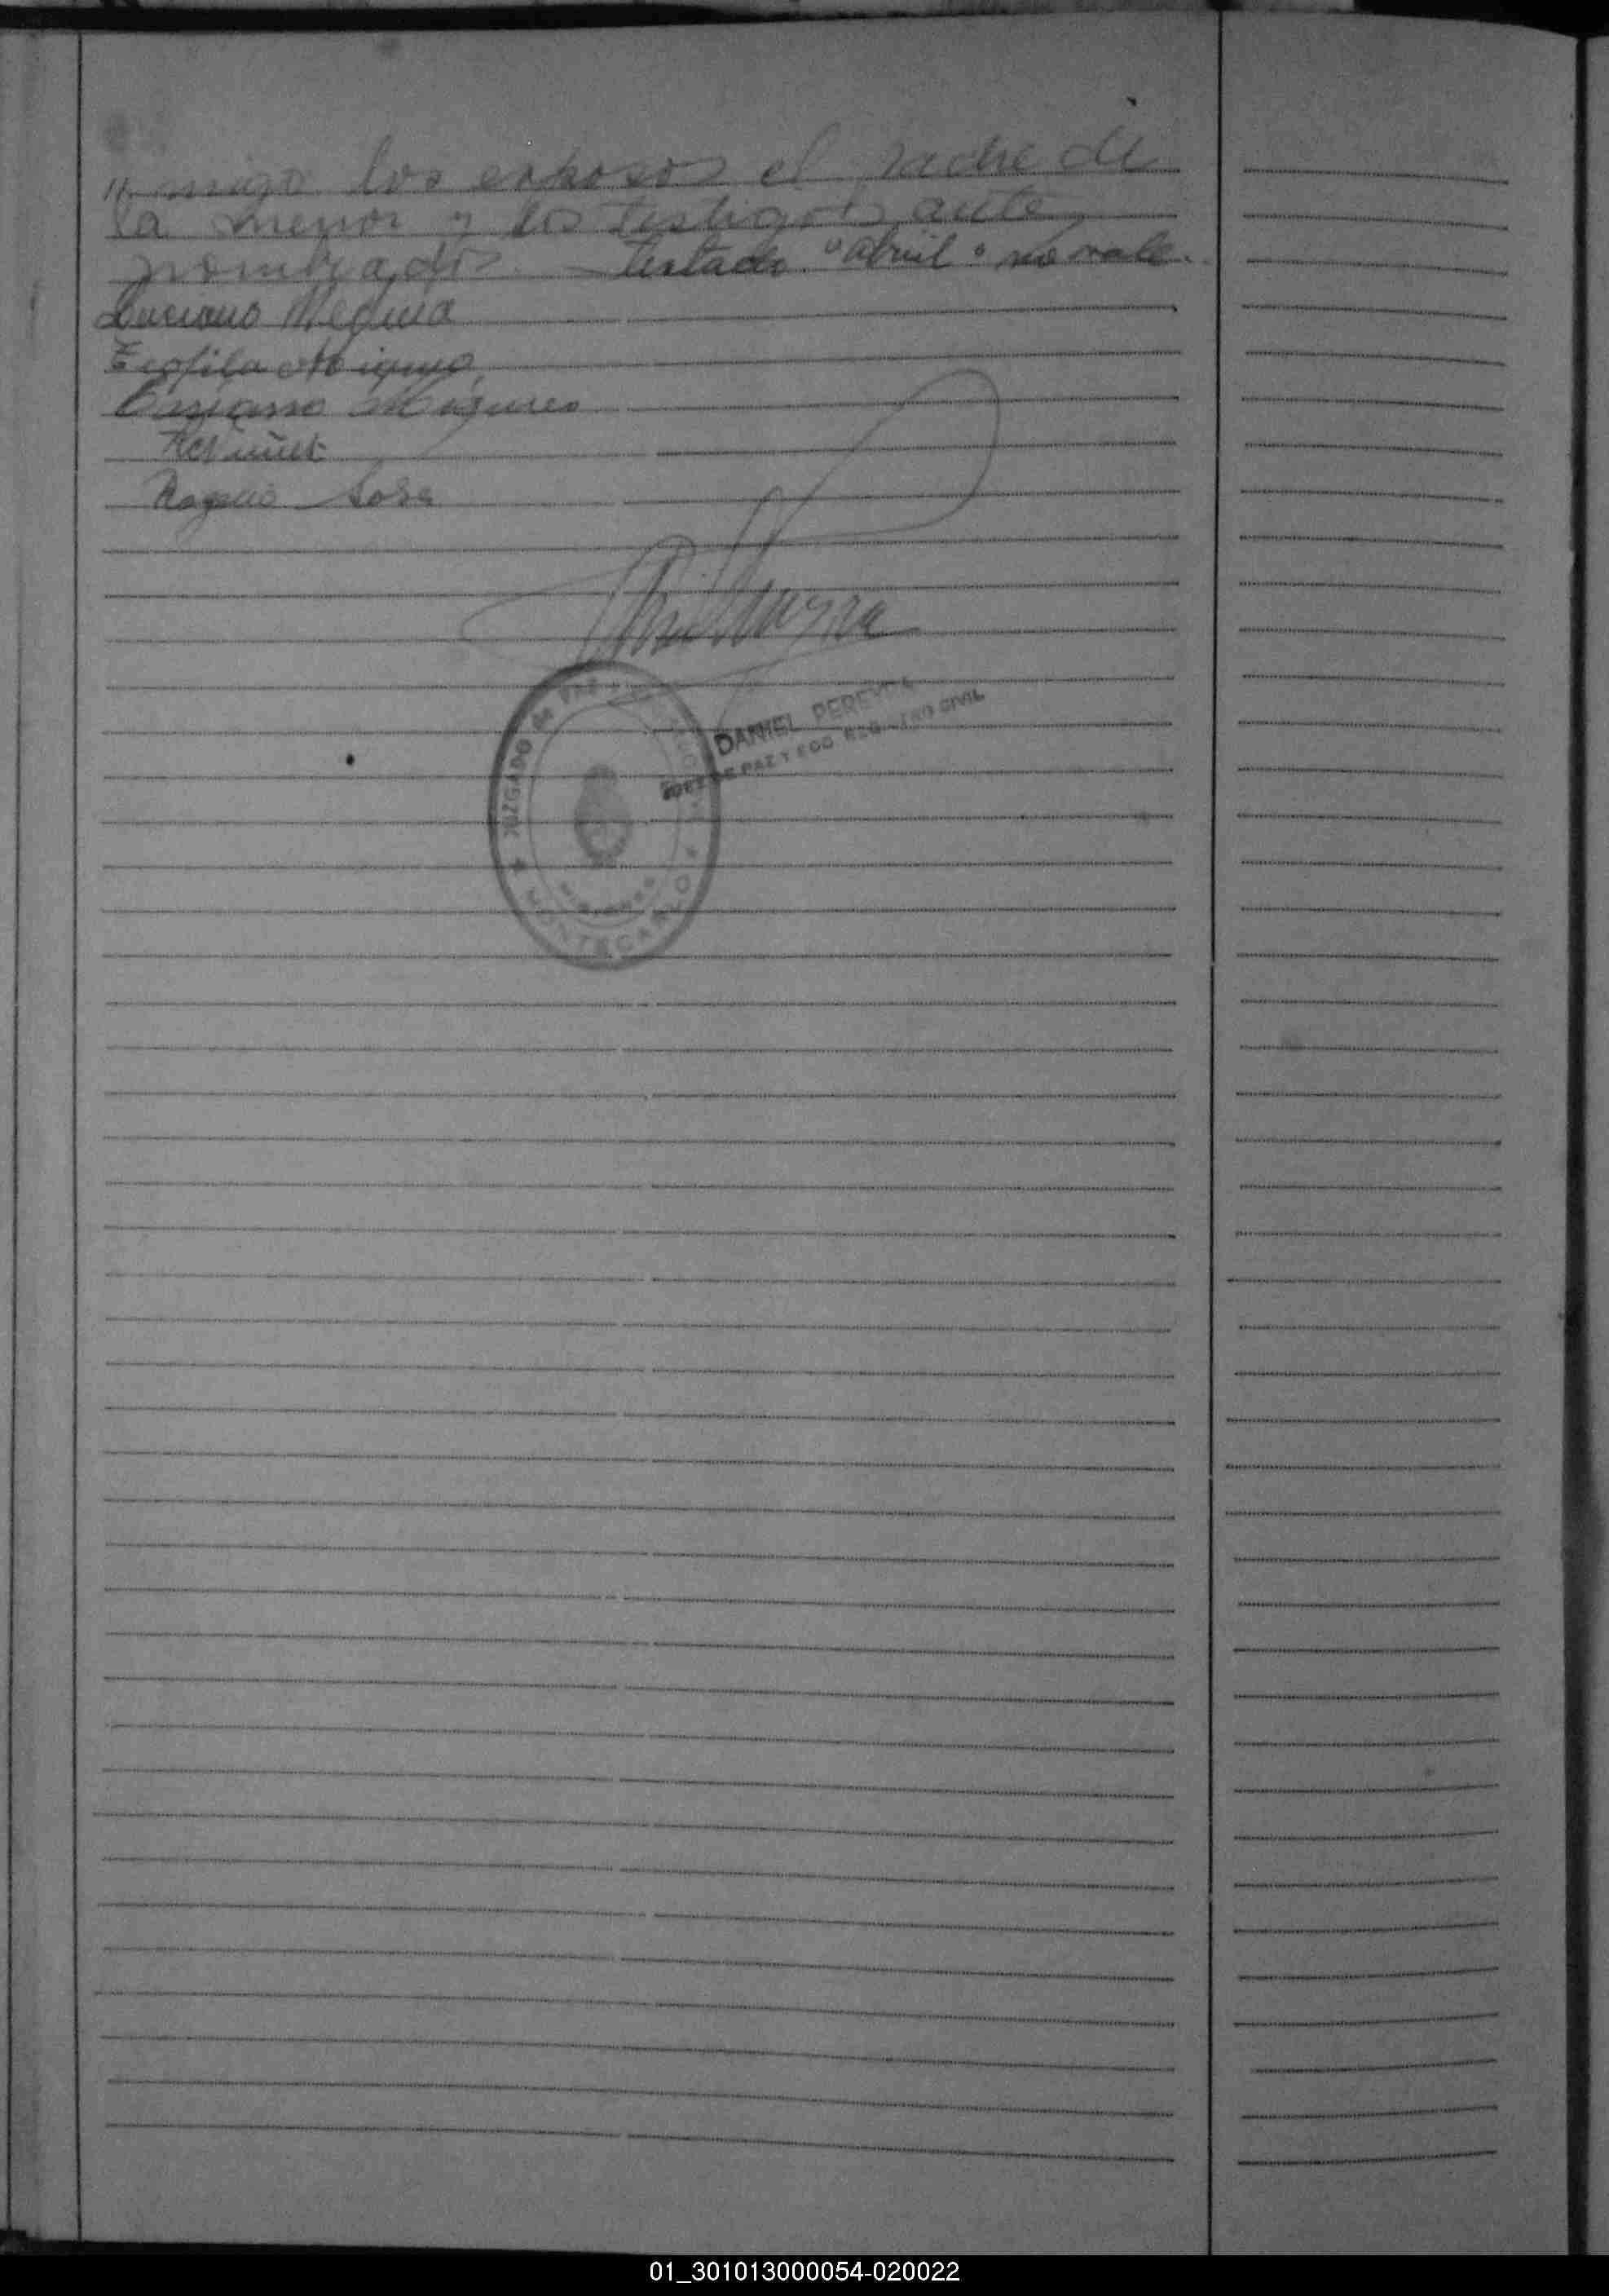 "migo los esposos el padre de
la menor y los testigos ante
nombrados. Testado "abril" no vale.
Luciano Medina
Teofila
Nuñez
Sosa
JUZGADO de PAZ
MONTECARLO
MISIONES
DANIEL PEREYRA
JUEZ DE PAZ Y ECO. REGISTRO CIVIL
01_301013000054-020022